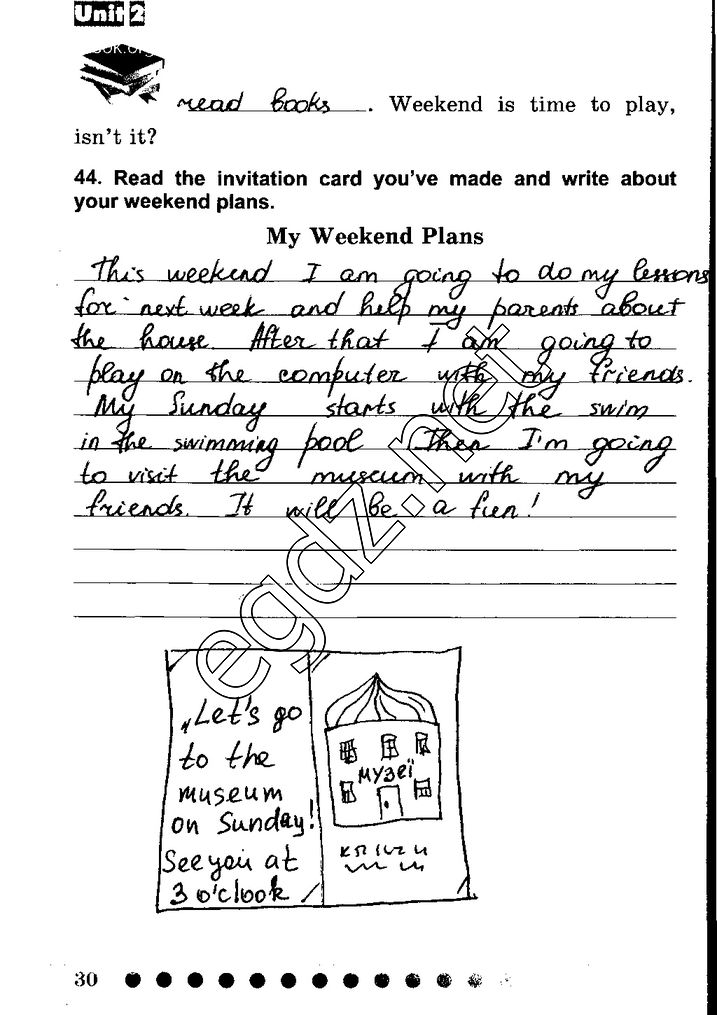 Unit 2
ook.or
read books. Weekend is time to play,
isn't it?
44. Read the invitation card you've made and write about
your weekend plans.
My Weekend Plans
This weekend I am going to do my lessons
for next week and help my parents about
the house. After that I am going to
play on the computer with my friends.
My Sunday starts with the swim
in the swimming pool. Then I'm going
to visit the museum with my
friends. It will be a fun!
egdz.net
„Let's go
to the
museum
on Sunday!
See you at
3 o'clook
музеї
30